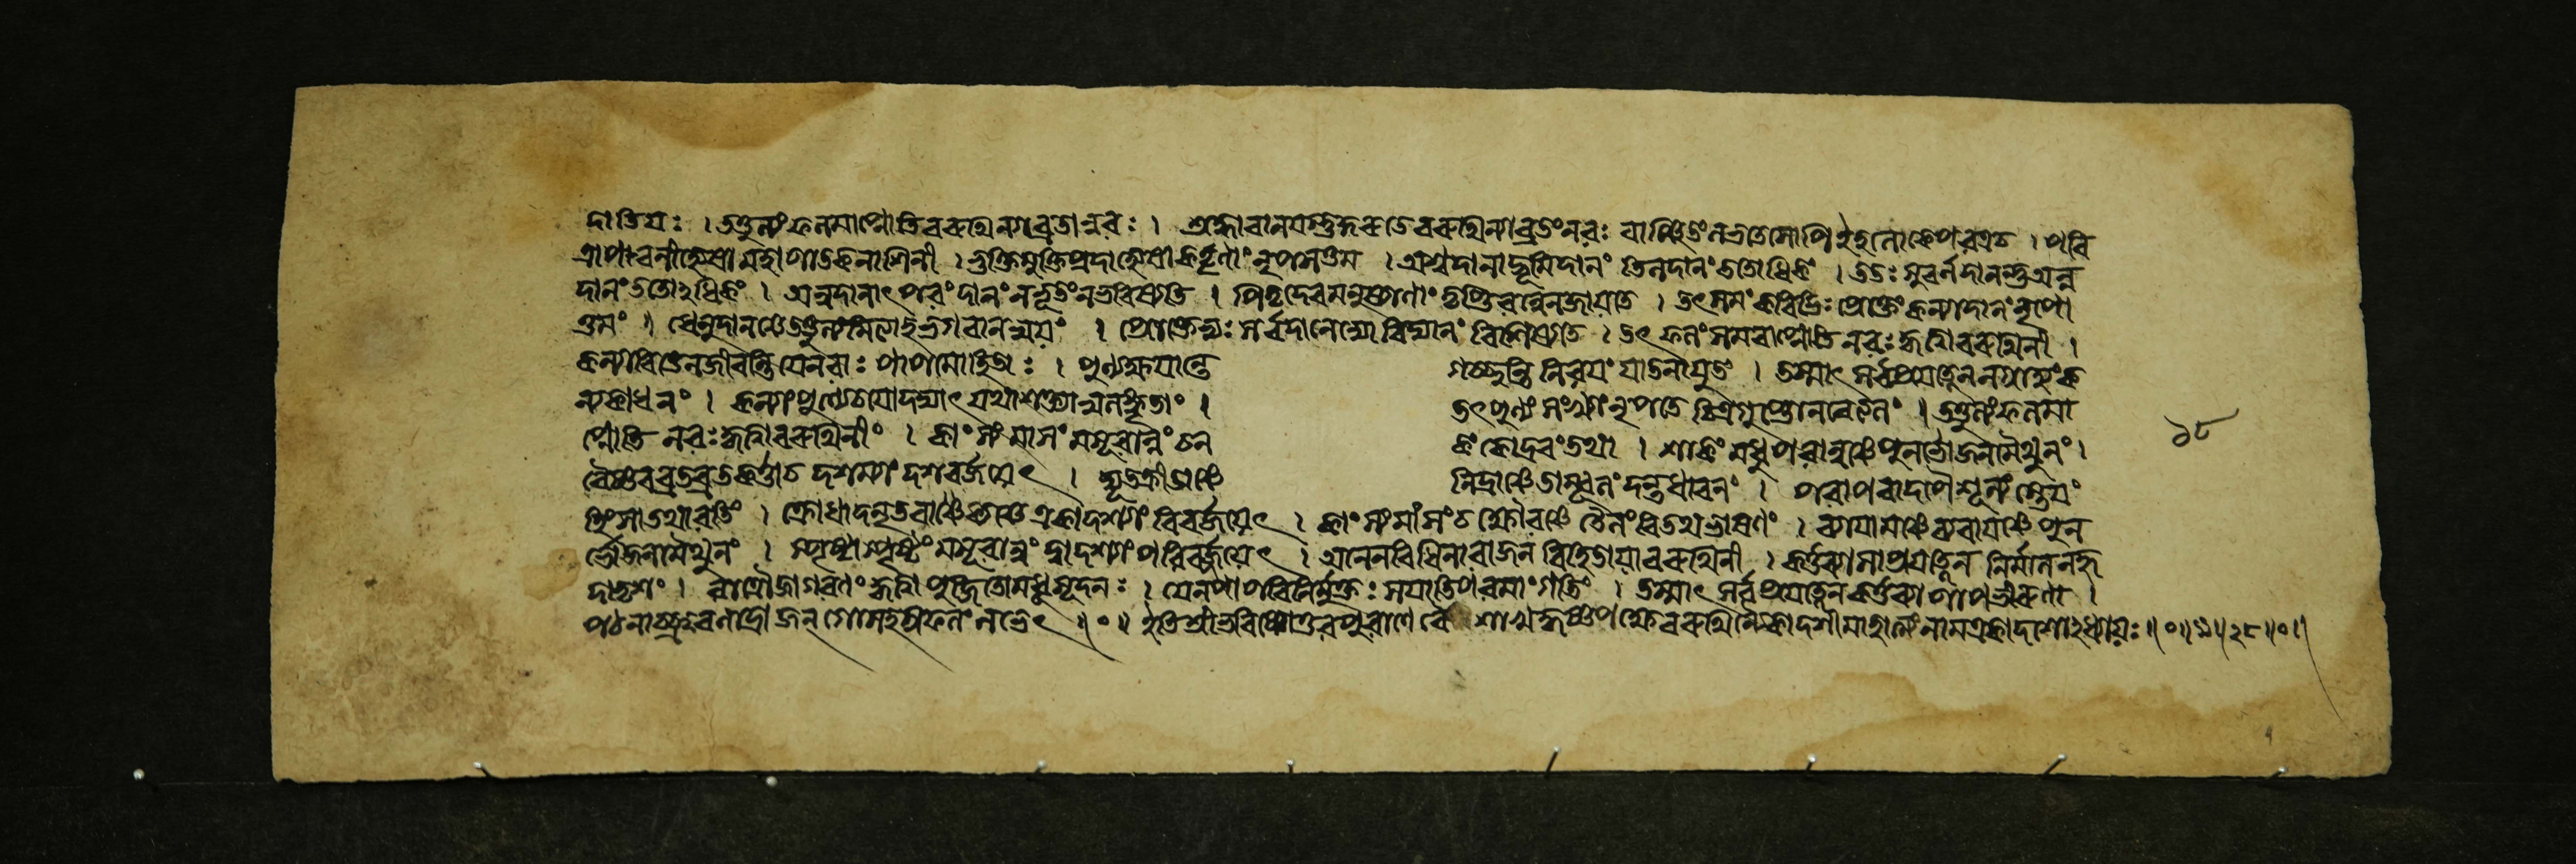 দাতিযঃ । তত্তুল্যং ফলমাপ্নোতি বরূথিন্যা ব্রতান্নরঃ । শ্রদ্ধাবান যস্তু কুরুতে বরূথিন্যা ব্রতং নরঃ বাঞ্ছিতং লভতে সোপি ইহলোকে পরত্র চ । পবি
ত্রা পাবনী হ্যেষা মহাপাতকনাশিনী । ভুক্তিমুক্তিপ্রদা হ্যেষা কর্তৄণাং নৃপসত্তম । অশ্বদানাদ্ভূমিদানং তিলদানং ততোধিকং । ততঃ সুবর্ণদানন্তু অন্ন
দানং ততোঽধিকং । অন্নদানাৎ পরং দানং ন ভূতং ন ভবিষ্যতি । পিতৃদেবমনুষ্যাণাং তৃপ্তিরন্নেন জায়তে । তৎসমং কবিভিঃ প্রোক্তং কন্যাদানং নৃপো
ত্তমং ॥ ধেনুদানঞ্চ তত্তুল্যমিত্যাহ ভগবান স্বয়ং । প্রোক্তেভ্যঃ সর্বদানেভ্যো বিদ্যানং বিশিষ্যতে । তৎ ফলং সমবাপ্নোতি নরঃ কৃত্বা বরূথিনী ।
কন্যাবিত্তেন জীবন্তি যে নরাঃ পাপমোহিতাঃ । পুণ্যক্ষয়ান্তে গচ্ছন্তি নিরয়ং যাতনাযুতং । তস্মাৎ সর্বপ্রযত্নেন ন গ্রাহ্যং ক
ন্যকাধনং । কন্যাং পুণ্যেচ যো দদ্যাৎ যথাশক্ত্যা স্বলঙ্কৃতাং । তৎপুণ্যসংখ্যাং নৃপতে চিত্রগুপ্তো ন বেত্যলং । তত্তুল্যং ফলমা
প্নোতি নরঃ কৃত্বা বরূথিনীং । কাংস্যং মাসং মসূরান্নং চন কং কোদ্রবং তথা । শাকং মধু পরান্নঞ্চ পুনর্ভোজনমৈথুনং ।
বৈষ্ণবব্রতব্রতকর্ত্তা চ দশম্যাং দশ বর্জয়েৎ । দ্যূতক্রীডাঞ্চ নিদ্রাঞ্চ তাম্বূলং দন্তধাবনং । পরাপবাদ পৈশূন্যং স্তেয়ং
হিংসা তথা রতিং । ক্রোধাদনৃতবাক্যঞ্চ একাদশ্যাং বিবর্জয়েৎ । কাংস্যং মাংসং চ ক্ষৌরঞ্চ তৈলং বিতথভাষণং । ব্যায়ামঞ্চ প্রবাসঞ্চ পুন
র্ভোজনমৈথুনং । মসূরান্নং দ্বাদশ্যাং পরিবর্জয়েৎ । অনেন বিধিনা রাজন বিহিতা যা বরূথিনী । কর্তব্যা সা প্রযত্নেন
রাত্রৌ জাগরণং কৃত্বা পূজিতো মধুসূদনঃ । যেন পাপবিনির্মুক্তঃ স যাতি পরমাং গতিং । তস্মাৎ সর্বপ্রযত্নেন কর্তব্যা পাপভীরুণা ।
পঠনাচ্ছ্রবণাদ্রাজন্ গোসহস্রফলং লভেৎ ॥০॥ ইতি শ্রীভবিষ্যোত্তরপুরাণে বৈশাখকৃষ্ণপক্ষে বরূথিন্যেকাদশীমাহাত্ম্যং নাম একাদশোঽধ্যায়ঃ ॥০॥
১৮